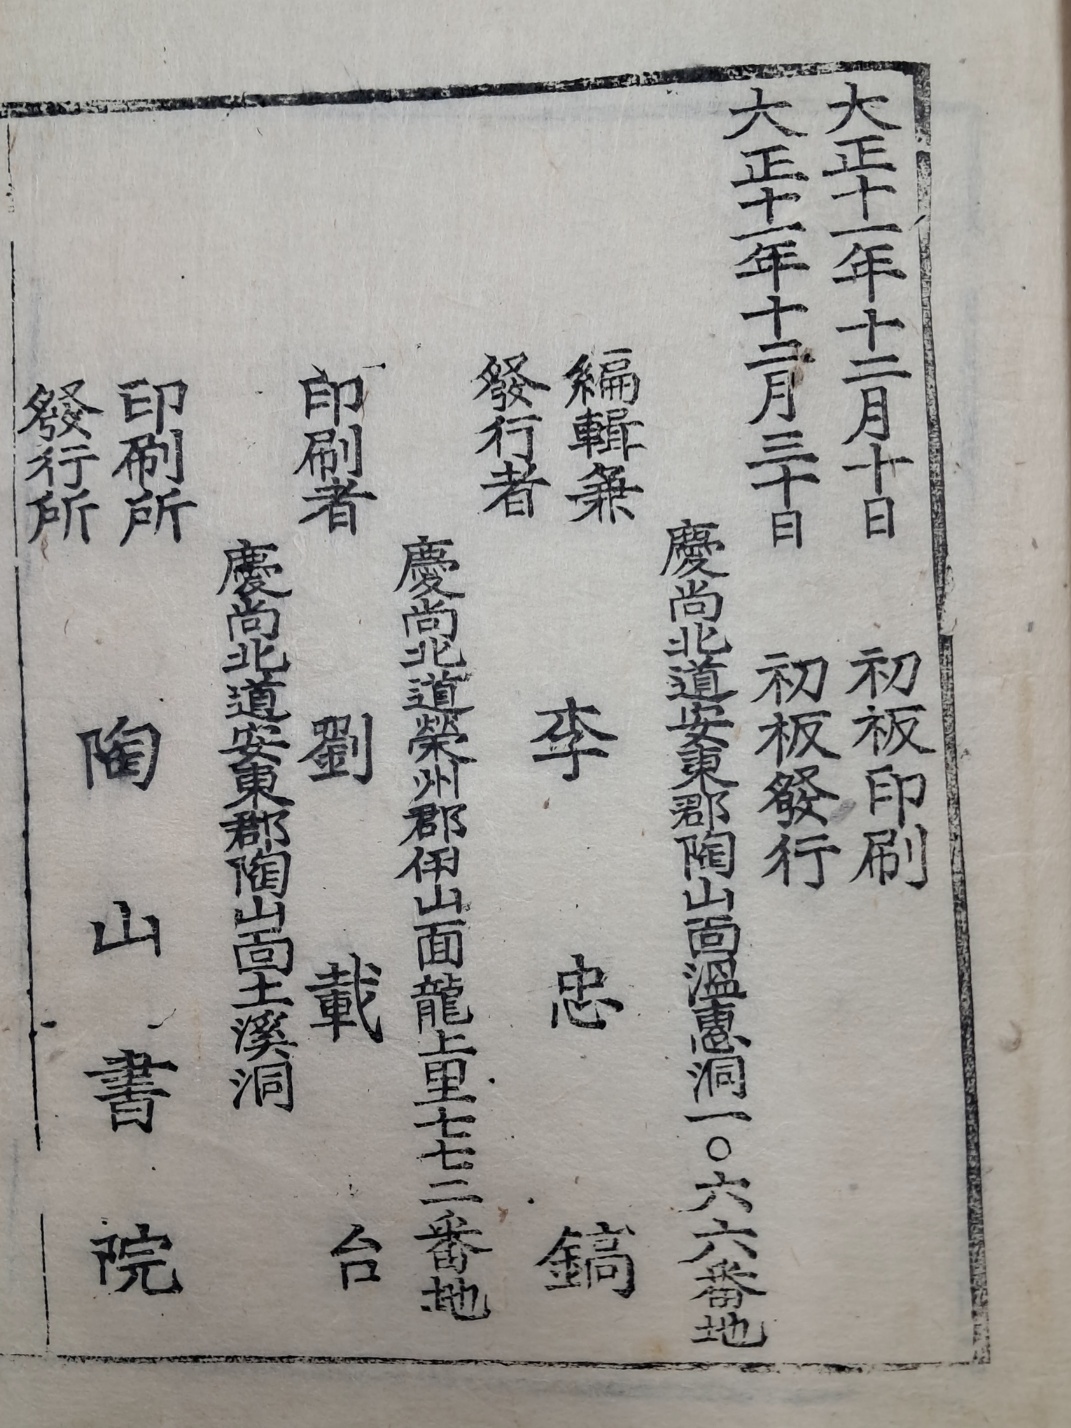 大正十一年十二月十日　初板印刷
大正十一年十二月三十日　初板發行
慶尚北道安東郡陶山面溫惠洞一〇六六番地
編輯兼
發行者　李忠鎬
慶尚北道榮州郡伊山面龍上里七七二番地
印刷者　劉載台
慶尚北道安東郡陶山面土溪洞
印刷所
發行所　陶山書院